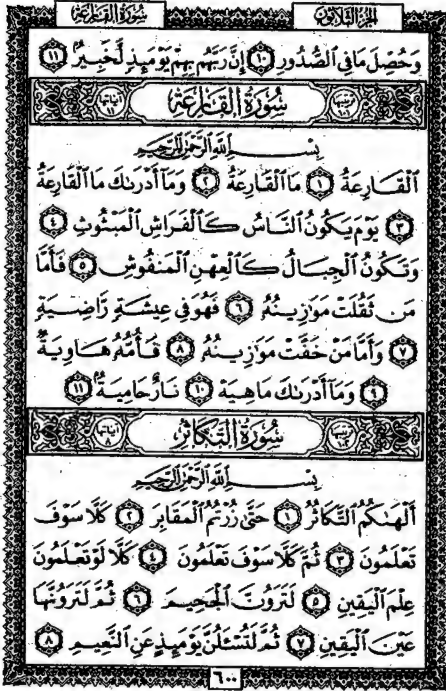 سُورَةُ القَارِعَةِ الجُزْءُ الثَّلَاثُونَ
وَحُصِّلَ مَا فِي ٱلصُّدُورِ ١٠ إِنَّ رَبَّهُم بِهِمْ يَوْمَئِذٍ لَّخَبِيرٌۢ ١١
سُورَةُ القَارِعَةِ
بِسْمِ ٱللَّهِ ٱلرَّحْمَٰنِ ٱلرَّحِيمِ
ٱلْقَارِعَةُ ١ مَا ٱلْقَارِعَةُ ٢ وَمَآ أَدْرَىٰكَ مَا ٱلْقَارِعَةُ
٣ يَوْمَ يَكُونُ ٱلنَّاسُ كَٱلْفَرَاشِ ٱلْمَبْثُوثِ ٤
وَتَكُونُ ٱلْجِبَالُ كَٱلْعِهْنِ ٱلْمَنفُوشِ ٥ فَأَمَّا
مَن ثَقُلَتْ مَوَٰزِينُهُۥ ٦ فَهُوَ فِي عِيشَةٍ رَّاضِيَةٍ
٧ وَأَمَّا مَنْ خَفَّتْ مَوَٰزِينُهُۥ ٨ فَأُمُّهُۥ هَاوِيَةٌ
٩ وَمَآ أَدْرَىٰكَ مَا هِيَهْ ١٠ نَارٌ حَامِيَةٌۢ ١١
سُورَةُ التَّكَاثُرِ
بِسْمِ ٱللَّهِ ٱلرَّحْمَٰنِ ٱلرَّحِيمِ
أَلْهَىٰكُمُ ٱلتَّكَاثُرُ ١ حَتَّىٰ زُرْتُمُ ٱلْمَقَابِرَ ٢ كَلَّا سَوْفَ
تَعْلَمُونَ ٣ ثُمَّ كَلَّا سَوْفَ تَعْلَمُونَ ٤ كَلَّا لَوْ تَعْلَمُونَ
عِلْمَ ٱلْيَقِينِ ٥ لَتَرَوُنَّ ٱلْجَحِيمَ ٦ ثُمَّ لَتَرَوُنَّهَا
عَيْنَ ٱلْيَقِينِ ٧ ثُمَّ لَتُسْـَٔلُنَّ يَوْمَئِذٍ عَنِ ٱلنَّعِيمِ ٨
٦٠٠